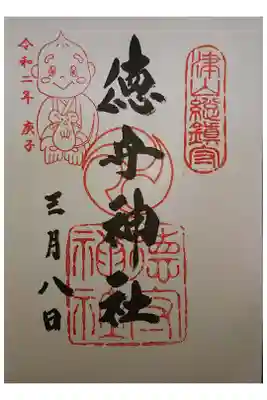 津山総鎮守
徳守神社
德守
神社
三月八日
令和二年 庚子